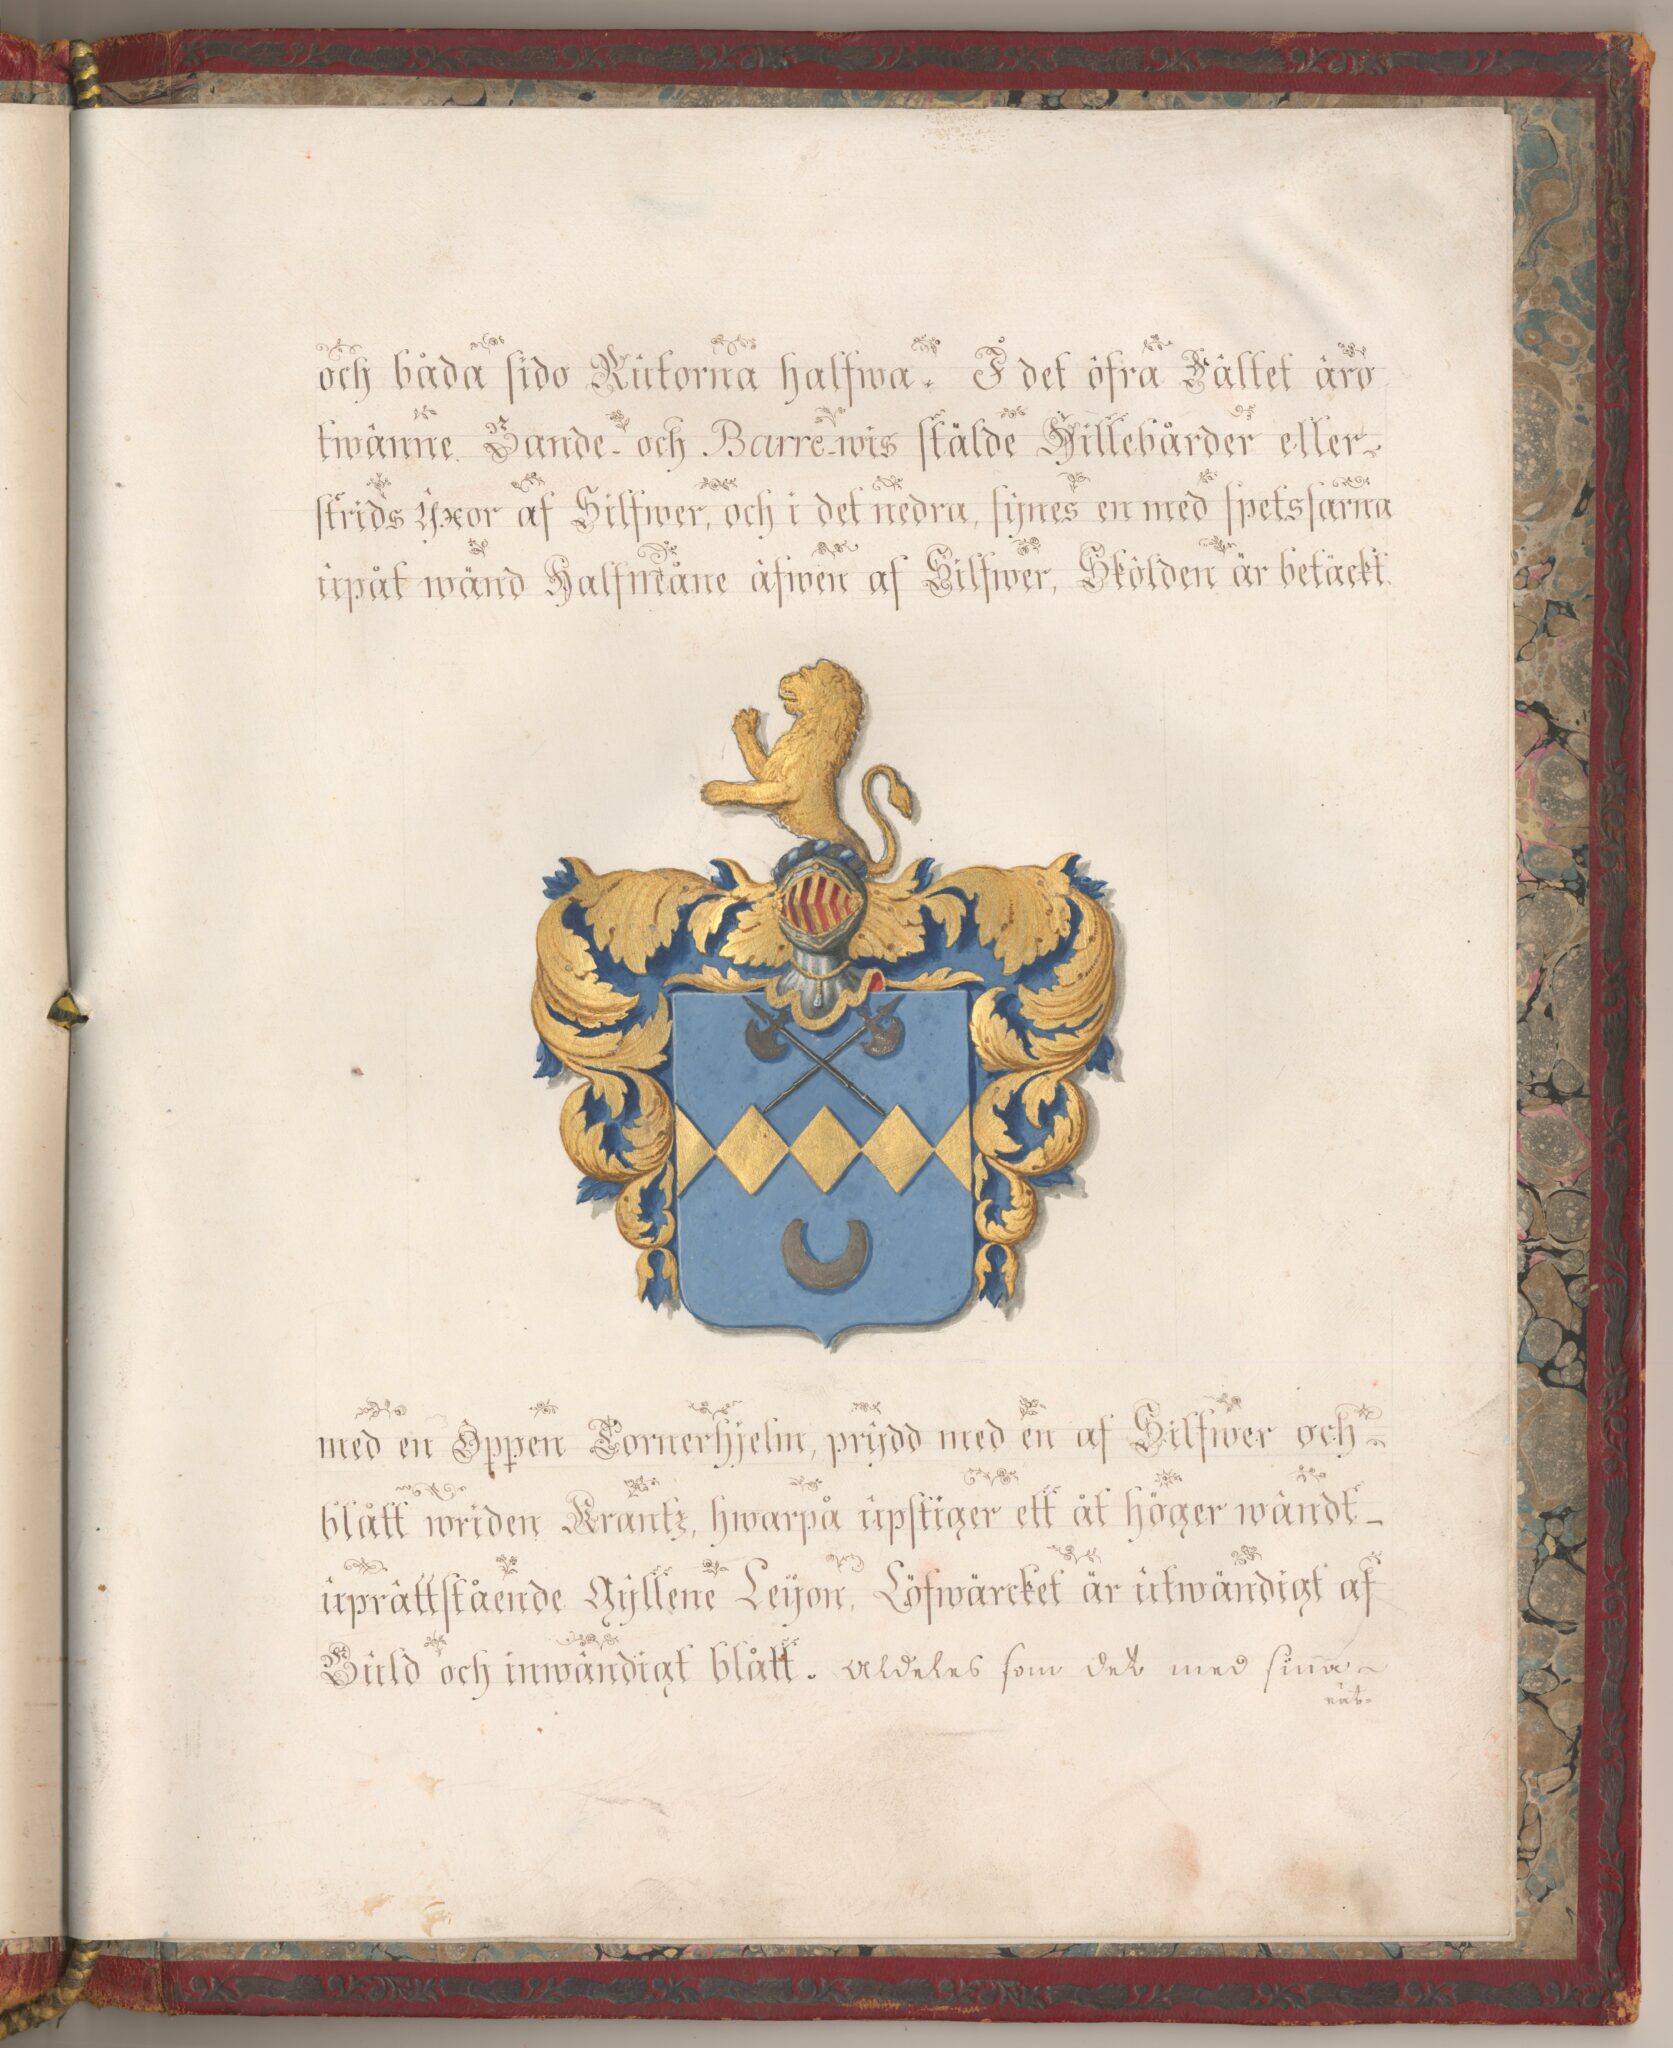 och båda sido Rutorna halfwa. I det öfra Fältet äro
twänne Bande- och Barre-wis stälde Hillebårder eller
strids Yxor af Silfwer, och i det nedra, synes en med spetssarna
upåt wänd Halfmåne äfwen af Silfwer, Skölden är betäckt
med en Öppen Tornerhjelm, prydd med en af Silfwer och
blått wriden Krantz, hwarpå upstiger ett åt höger wändt
uprättstående Gyllene Leijon, Löfwärcket är utwändigt af
Guld och inwändigt blått. Aldeles som det med sina